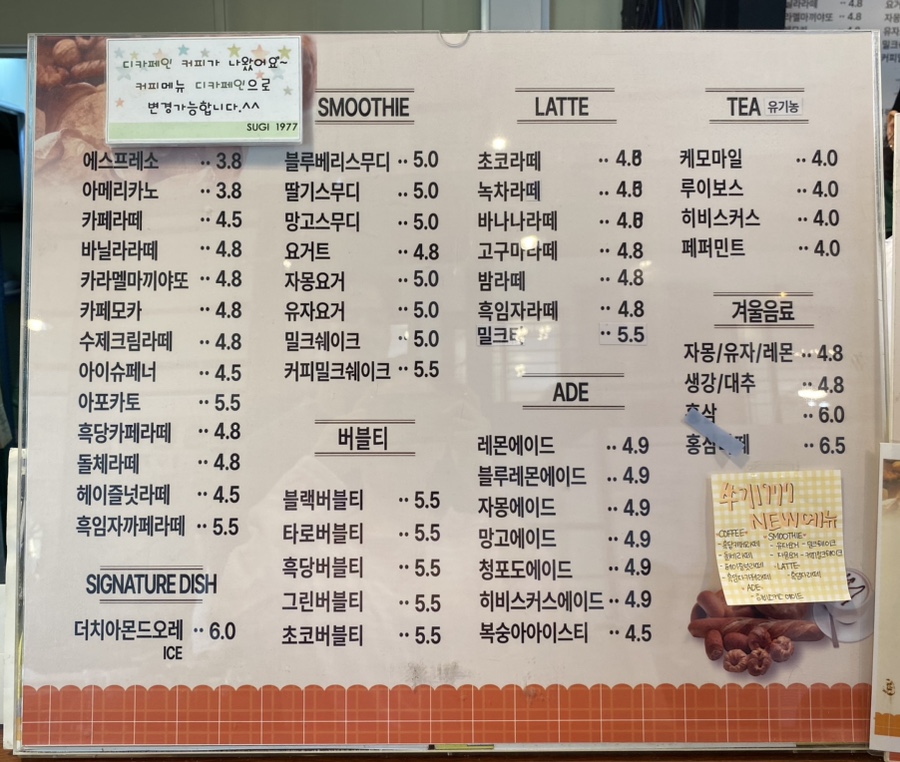 디카페인 커피가 나왔어요~
커피메뉴 디카페인으로
변경가능합니다.^^
SUGI 1977
에스프레소 ·· 3.8
아메리카노 ·· 3.8
카페라떼 ·· 4.5
바닐라라떼 ·· 4.8
카라멜마끼야또 ·· 4.8
카페모카 ·· 4.8
수제크림라떼 ·· 4.8
아이슈페너 ·· 4.5
아포카토 ·· 5.5
흑당카페라떼 ·· 4.8
돌체라떼 ·· 4.8
헤이즐넛라떼 ·· 4.5
흑임자까페라떼 ·· 5.5
SIGNATURE DISH
더치아몬드오레 ·· 6.0
ICE
SMOOTHIE
블루베리스무디 ·· 5.0
딸기스무디 ·· 5.0
망고스무디 ·· 5.0
요거트 ·· 4.8
자몽요거 ·· 5.0
유자요거 ·· 5.0
밀크쉐이크 ·· 5.0
커피밀크쉐이크 ·· 5.5
버블티
블랙버블티 ·· 5.5
타로버블티 ·· 5.5
흑당버블티 ·· 5.5
그린버블티 ·· 5.5
초코버블티 ·· 5.5
LATTE
초코라떼 ·· 4.8
녹차라떼 ·· 4.8
바나나라떼 ·· 4.8
고구마라떼 ·· 4.8
밤라떼 ·· 4.8
흑임자라떼 ·· 4.8
밀크티 ·· 5.5
ADE
레몬에이드 ·· 4.9
블루레몬에이드 ·· 4.9
자몽에이드 ·· 4.9
망고에이드 ·· 4.9
청포도에이드 ·· 4.9
히비스커스에이드 ·· 4.9
복숭아아이스티 ·· 4.5
TEA 유기농
케모마일 ·· 4.0
루이보스 ·· 4.0
히비스커스 ·· 4.0
페퍼민트 ·· 4.0
겨울음료
자몽/유자/레몬 ·· 4.8
생강/대추 ·· 4.8
홍삼 ·· 6.0
홍삼라떼 ·· 6.5
NEW메뉴
COFFEE-
-SMOOTHIE-
-유자요거 -밀크쉐이크
-자몽요거 -커피밀크쉐이크
-LATTE-
-ADE-